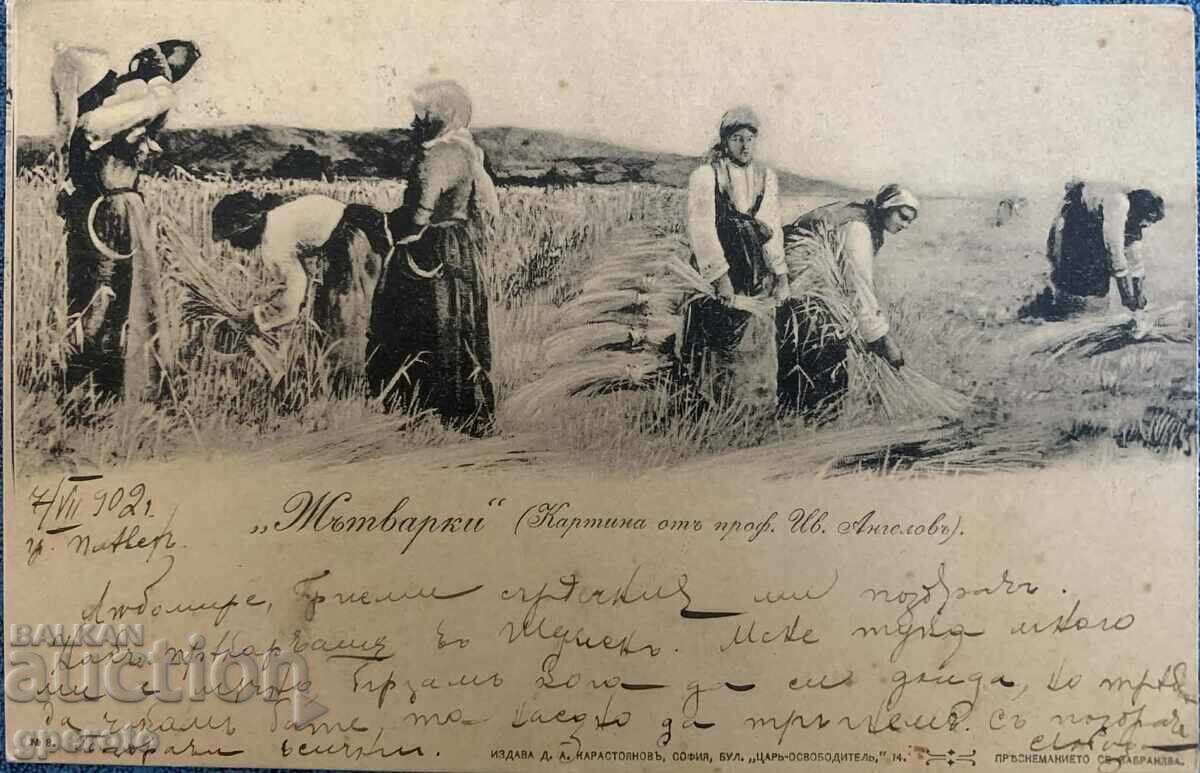 7/VII 902 г.
гр. Плѣвенъ.
„Жътварки“ (Картина отъ проф. Ив. Ангеловъ).
Любомире, Приеми сърдечния ми поздравъ.
въ Мене тука много
ми е бързамъ кога да си дойда, но трѣбва
да чекамъ бате, та наедно да тръгнеме. Съ поздравъ
всички.
BALKAN
auction
gperoto
№ 8.
ИЗДАВА Д. А. КАРАСТОЯНОВЪ, СОФИЯ, БУЛ. „ЦАРЬ-ОСВОБОДИТЕЛЬ,“ 14.
ПРѢСНЕМАНИЕТО СЕ ЗАБРАНЯВА.